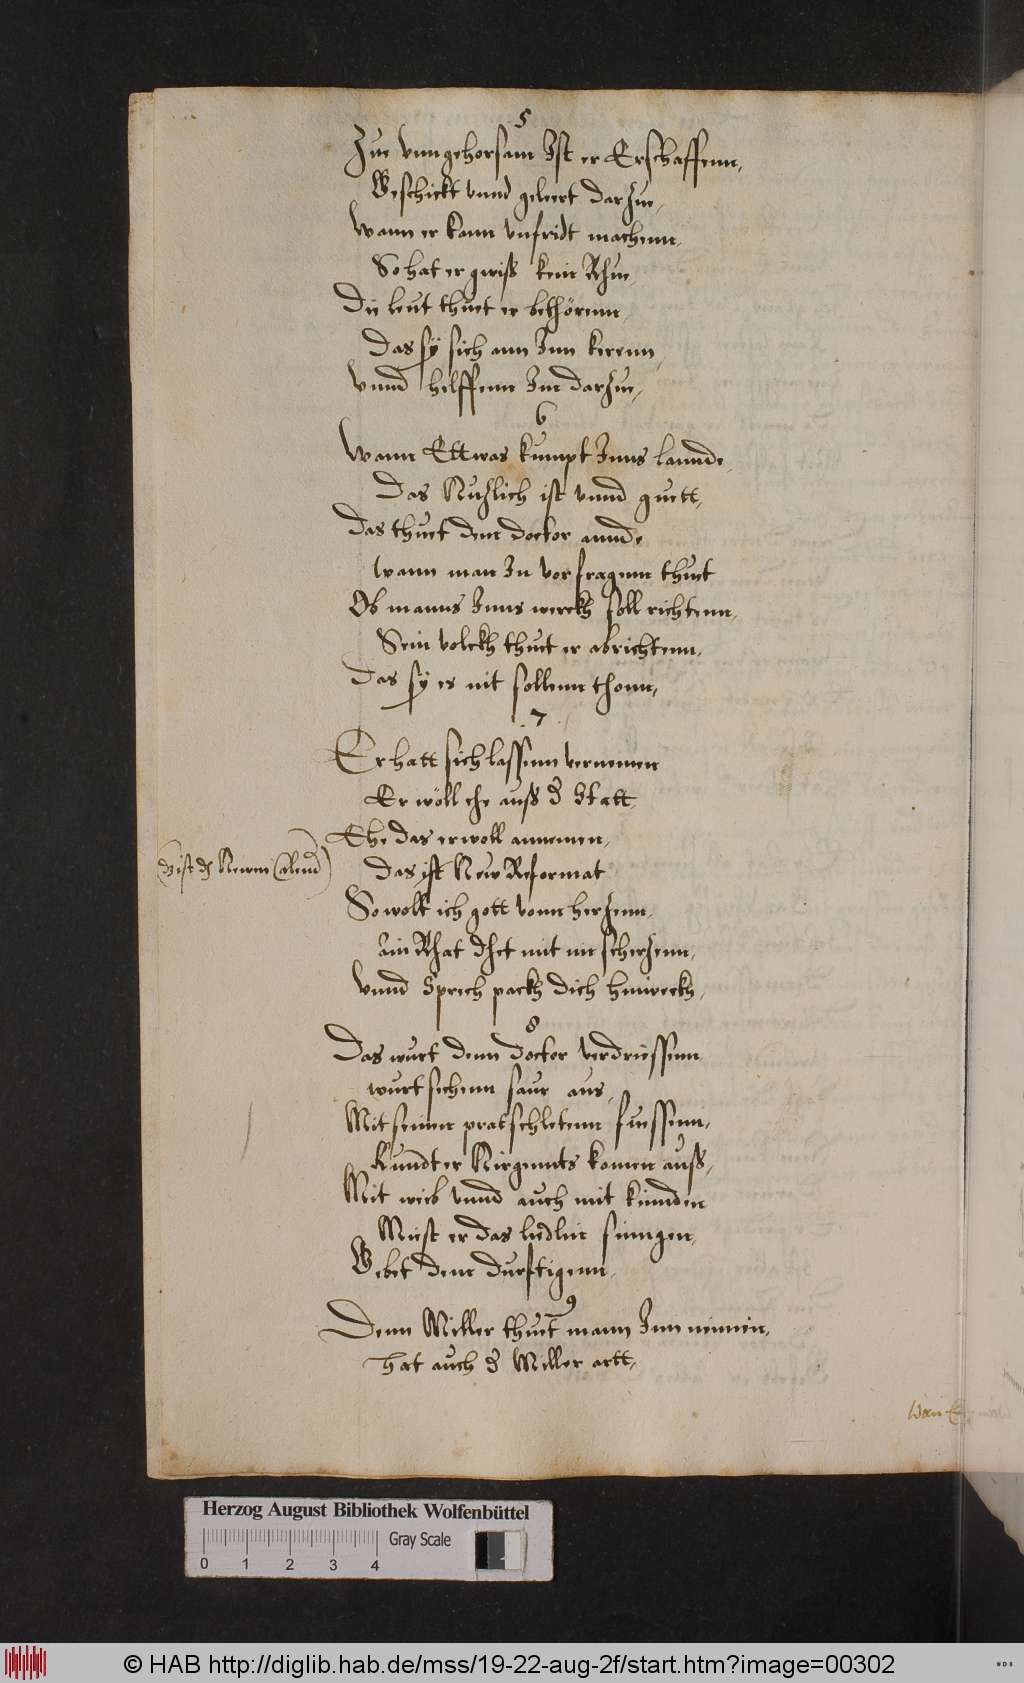 5
Zue vnngehorsam Ist er Erschaffenn,
Geschickt vnnd geleert darzue,
Wann er kann vnfridt machenn,
So hat er gwiß kein Rhue,
Die leut thuet er bethörenn,
Das sy sich ann Inn kerenn,
Vnnd helffenn Im darzue,
6
Wann Ettwas kumpt Inns lannde,
Das Nuzlich ist vnnd guett,
Das thuet dem doctor annde,
Wann man In vor fragenn thuet
Ob manns Inns werckh soll richtenn,
Sein volckh thuet er abrichtenn,
Das sy es nit sollenn thonn,
7
Er hatt sich lassenn vernemen
Er wöll ehe auß d Statt,
Ehe das er woll annemen,
d ist d Newen Calend
Das ist New Reformat
So wolt ich gott vonn herzenn,
Ain Rhat thet mit im scherzenn,
Vnnd Sprech packh dich hinweckh,
8
Das wurt denn doctor verdriessenn
wurt sehenn saur aus,
Mit seinen pratschletenn fuessenn,
Kundt er Nirgennts komen auß,
Mit weib vnnd auch mit kinnden
Miest er das liedlin singen,
Gebet dem durfftigenn,
9
Denn Miller thuet mann Inn nennen,
hat auch d Miller artt,
Herzog August Bibliothek Wolfenbüttel
0 1 2 3 4
Gray Scale
© HAB http://diglib.hab.de/mss/19-22-aug-2f/start.htm?image=00302